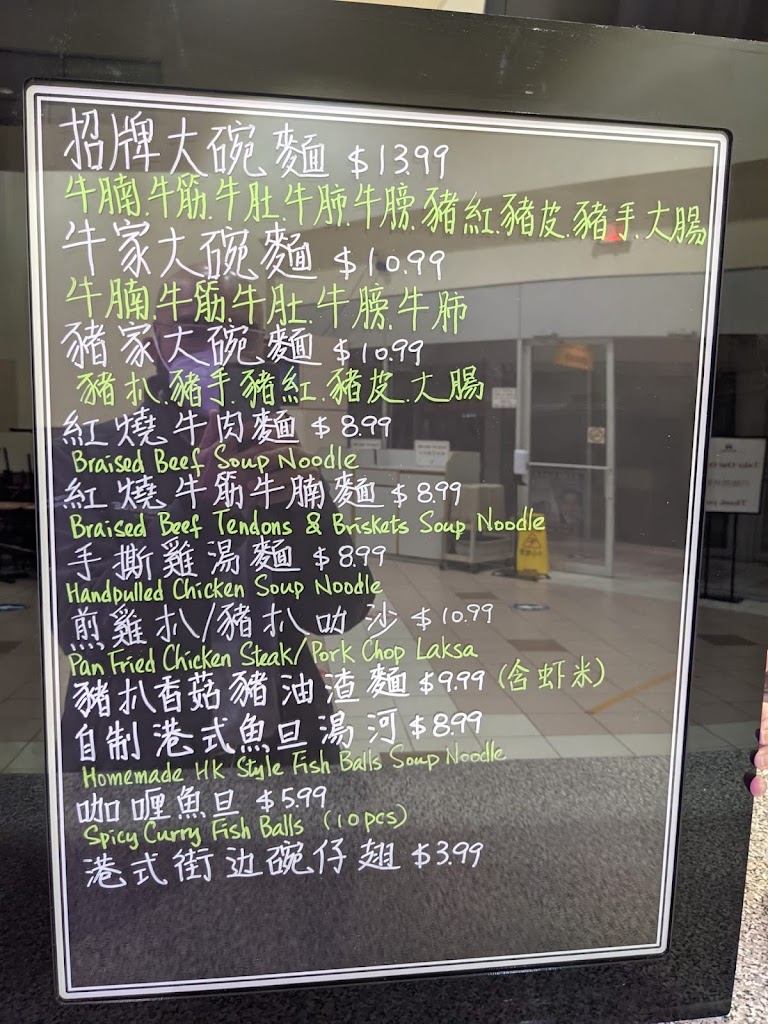 招牌大碗麵 $13.99
牛腩.牛筋.牛肚.牛肺.牛膀.豬紅.豬皮.豬手.大腸
牛家大碗麵 $10.99
牛腩.牛筋.牛肚.牛膀.牛肺
豬家大碗麵 $10.99
豬扒.豬手.豬紅.豬皮.大腸
紅燒牛肉麵 $8.99
Braised Beef Soup Noodle
紅燒牛筋牛腩麵 $8.99
Braised Beef Tendons & Briskets Soup Noodle
手撕雞湯麵 $8.99
Handpulled Chicken Soup Noodle
煎雞扒/豬扒叻沙 $10.99
Pan Fried Chicken Steak/Pork Chop Laksa
豬扒香菇豬油渣麵 $9.99 (含虾米)
自制港式魚旦湯河 $8.99
Homemade HK Style Fish Balls Soup Noodle
咖喱魚旦 $5.99
Spicy Curry Fish Balls (10pcs)
港式街边碗仔翅 $3.99